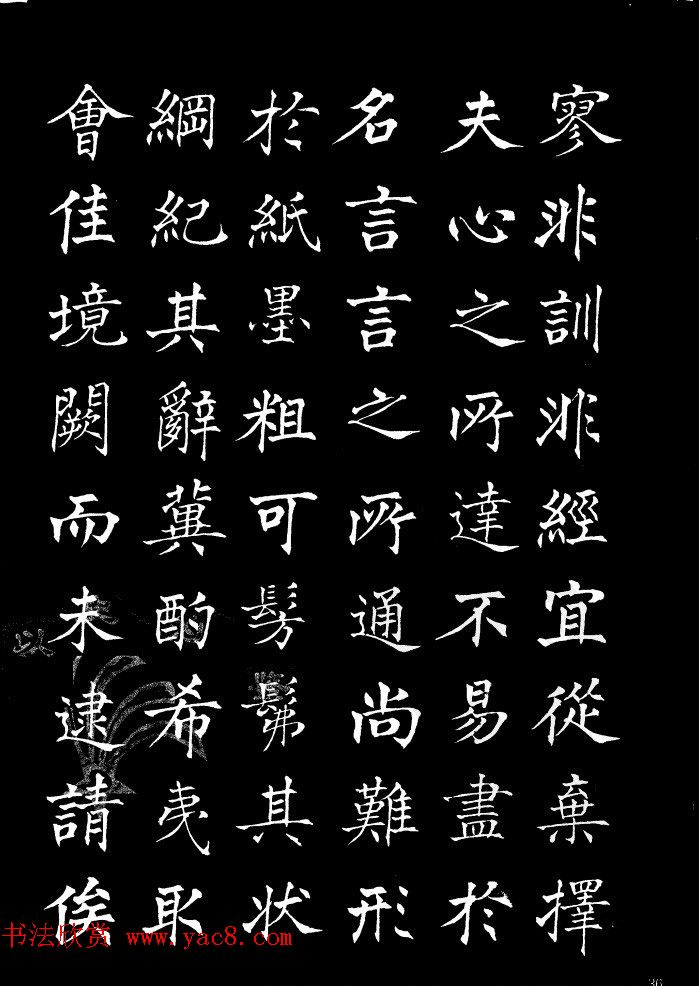 寥非訓非經宜從棄擇
夫心之所達不易盡於
名言言之所通尚難形
於紙墨粗可髣髴其狀
綱紀其辭冀酌希夷取
會佳境闕而未逮請俟
以
书法欣赏 www.yac8.com
36